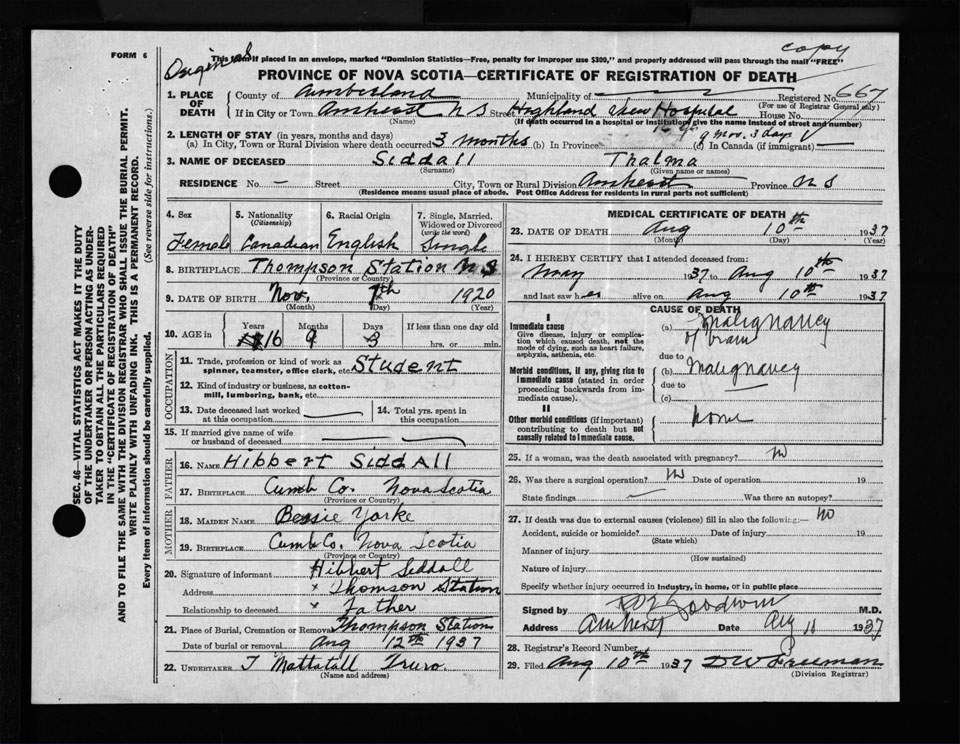 FORM 6
Original
copy
This form if placed in an envelope, marked "Dominion Statistics—Free, penalty for improper use $300," and properly addressed will pass through the mail "FREE"
PROVINCE OF NOVA SCOTIA—CERTIFICATE OF REGISTRATION OF DEATH
1. PLACE OF DEATH
County of Cumberland Municipality of Registered No. 667
(For use of Registrar General only)
If in City or Town Amherst N S Street Highland View Hospital House No.
(Name) (If death occurred in a hospital or institution, give the name instead of street and number)
2. LENGTH OF STAY (in years, months and days)
(a) In City, Town or Rural Division where death occurred 3 months (b) In Province 16 y. 9 mos. 3 days (c) In Canada (if immigrant)
3. NAME OF DECEASED Siddall Thalma
(Surname) (Given name or names)
RESIDENCE No. Street City, Town or Rural Division Amherst Province N S
(Residence means usual place of abode. Post Office Address for residents in rural parts not sufficient)
4. Sex Female
5. Nationality (Citizenship) Canadian
6. Racial Origin English
7. Single, Married, Widowed or Divorced (write the word) Single
8. BIRTHPLACE Thompson Station N S
(Province or Country)
9. DATE OF BIRTH Nov. 7th 1920
(Month) (Day) (Year)
10. AGE in Years 16 Months 9 Days 3 If less than one day old hrs. or min.
OCCUPATION
11. Trade, profession or kind of work as spinner, teamster, office clerk, etc. Student
12. Kind of industry or business, as cotton-mill, lumbering, bank, etc.
13. Date deceased last worked at this occupation
14. Total yrs. spent in this occupation
15. If married give name of wife or husband of deceased
FATHER
16. NAME Hibbert Siddall
17. BIRTHPLACE Cumb Co. Nova Scotia
(Province or Country)
MOTHER
18. MAIDEN NAME Bessie Yorke
19. BIRTHPLACE Cumb Co. Nova Scotia
(Province or Country)
20. Signature of informant Hibbert Siddall
Address x Thomson Station
Relationship to deceased x Father
21. Place of Burial, Cremation or Removal Thompson Station
Date of burial or removal Aug 12th 1937
22. UNDERTAKER T Mattatall Truro.
(Name and address)
MEDICAL CERTIFICATE OF DEATH
23. DATE OF DEATH Aug 10th 1937
(Month) (Day) (Year)
24. I HEREBY CERTIFY that I attended deceased from:
May 1937 to Aug 10th 1937
and last saw her alive on Aug 10th 1937
CAUSE OF DEATH
I
Immediate cause
Give disease, injury or complication which caused death, not the mode of dying, such as heart failure, asphyxia, asthenia, etc.
(a) Malignancy of brain
due to
Morbid conditions, if any, giving rise to immediate cause (stated in order proceeding backwards from immediate cause).
(b) Malignancy
due to
(c)
II
Other morbid conditions (if important) contributing to death but not causally related to immediate cause.
None
25. If a woman, was the death associated with pregnancy? No
26. Was there a surgical operation? No Date of operation 19
State findings Was there an autopsy?
27. If death was due to external causes (violence) fill in also the following:— No
Accident, suicide or homicide? Date of injury 19
(State which)
Manner of injury
(How sustained)
Nature of injury
Specify whether injury occurred in industry, in home, or in public place
Signed by Goodwin M.D.
Address Amherst Date Aug 10 1937
28. Registrar's Record Number
29. Filed Aug 10th 1937 D W Freeman
(Division Registrar)
SEC. 46— VITAL STATISTICS ACT MAKES IT THE DUTY
OF THE UNDERTAKER OR PERSON ACTING AS UNDER-
TAKER TO OBTAIN ALL THE PARTICULARS REQUIRED
IN THE "CERTIFICATE OF REGISTRATION OF DEATH"
AND TO FILE THE SAME WITH THE DIVISION REGISTRAR WHO SHALL ISSUE THE BURIAL PERMIT.
WRITE PLAINLY WITH UNFADING INK. THIS IS A PERMANENT RECORD.
Every item of information should be carefully supplied. (See reverse side for instructions.)